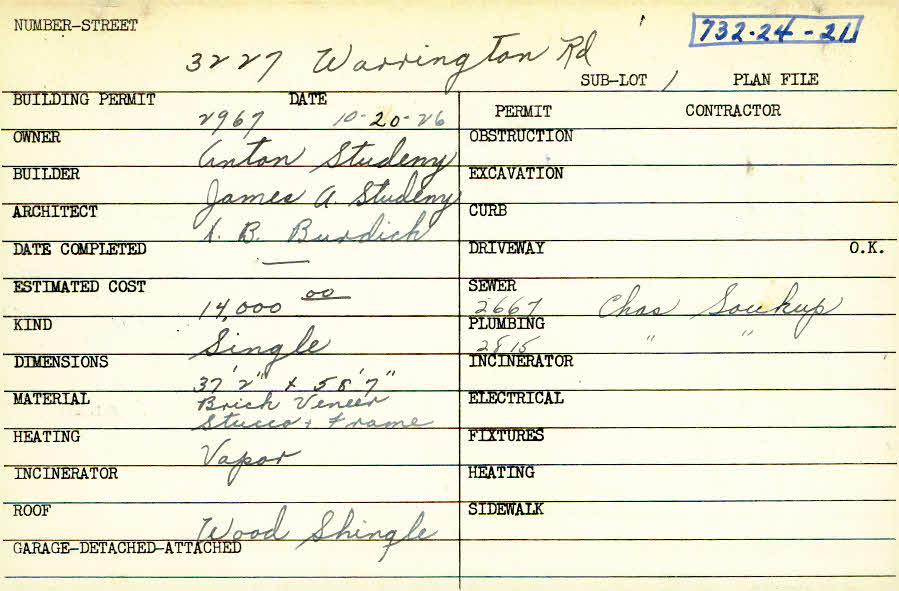 NUMBER-STREET
732-24-21
3227 Warrington Rd
SUB-LOT / PLAN FILE
BUILDING PERMIT 2967 DATE 10-20-26
OWNER Anton Studeny
BUILDER James A. Studeny
ARCHITECT A. B. Burdick
DATE COMPLETED —
ESTIMATED COST 14,000 00
KIND Single
DIMENSIONS 37'2" x 58'7"
MATERIAL Brick Veneer
Stucco + Frame
HEATING Vapor
INCINERATOR
ROOF Wood Shingle
GARAGE-DETACHED-ATTACHED
PERMIT CONTRACTOR
OBSTRUCTION
EXCAVATION
CURB
DRIVEWAY O.K.
SEWER 2667 Chas Soukup
PLUMBING 2815 " "
INCINERATOR
ELECTRICAL
FIXTURES
HEATING
SIDEWALK